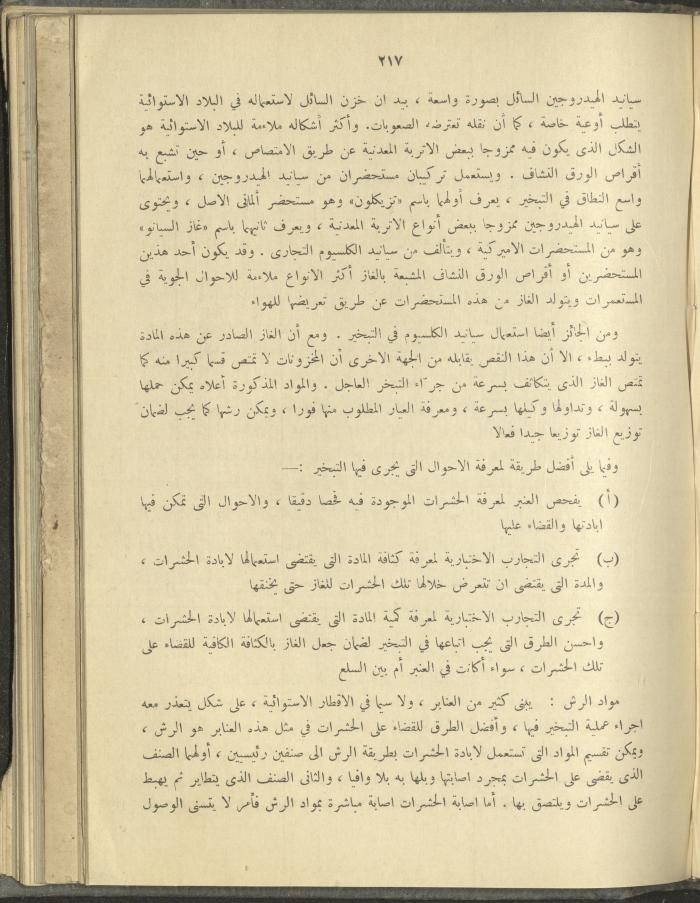 ٢١٧
سيانيد الهيدروجين السائل بصورة واسعة ، بيد ان خزن السائل لاستعماله في البلاد الاستوائية
يتطلب أوعية خاصة ، كما أن نقله تعترضه الصعوبات. وأكثر أشكاله ملاءمة للبلاد الاستوائية هو
الشكل الذى يكون فيه ممزوجا ببعض الاتربة المعدنية عن طريق الامتصاص ، أو حين تشبع به
أقراص الورق النشاف . ويستعمل تركيبان مستحضران من سيانيد الهيدروجين ، واستعمالهما
واسع النطاق في التبخير ، يعرف أولهما باسم «تزيكلون» وهو مستحضر ألمانى الاصل ، ويحتوى
على سيانيد الهيدروجين ممزوجا ببعض أنواع الاتربة المعدنية ، ويعرف ثانيهما باسم «غاز السيانو»
وهو من المستحضرات الاميركية ، ويتألف من سيانيد الكلسيوم التجارى . وقد يكون أحد هذين
المستحضرين أو أقراص الورق النشاف المشبعة بالغاز أكثر الانواع ملاءمة للاحوال الجوية في
المستعمرات ويتولد الغاز من هذه المستحضرات عن طريق تعريضها للهواء
ومن الجائز أيضا استعمال سيانيد الكلسيوم في التبخير . ومع أن الغاز الصادر عن هذه المادة
يتولد ببطء ، الا أن هذا النقص يقابله من الجهة الاخرى أن المخزونات لا تمتص قسما كبيرا منه كما
تمتص الغاز الذى يتكاثف بسرعة من جراء التبخر العاجل . والمواد المذكورة أعلاه يمكن حملها
بسهولة ، وتداولها وكيلها بسرعة ، ومعرفة العيار المطلوب منها فورا ، ويمكن رشها كما يجب لضمان
توزيع الغاز توزيعا جيدا فعالا
وفيما يلى أفضل طريقة لمعرفة الاحوال التى يجرى فيها التبخير :—
(أ) يفحص العنبر لمعرفة الحشرات الموجودة فيه فحصا دقيقا ، والاحوال التى تمكن فيها
ابادتها والقضاء عليها
(ب) تجرى التجارب الاختبارية لمعرفة كثافة المادة التى يقتضى استعمالها لابادة الحشرات ،
والمدة التى يقتضى ان تتعرض خلالها تلك الحشرات للغاز حتى يخنقها
(ج) تجرى التجارب الاختبارية لمعرفة كمية المادة التى يقتضى استعمالها لابادة الحشرات ،
واحسن الطرق التى يجب اتباعها في التبخير لضمان جعل الغاز بالكثافة الكافية للقضاء على
تلك الحشرات ، سواء أكانت في العنبر أم بين السلع
مواد الرش : يبنى كثير من العنابر ، ولا سيما في الاقطار الاستوائية ، على شكل يتعذر معه
اجراء عملية التبخير فيها ، وأفضل الطرق للقضاء على الحشرات في مثل هذه العنابر هو الرش ،
ويمكن تقسيم المواد التى تستعمل لابادة الحشرات بطريقة الرش الى صنفين رئيسيين ، أولهما الصنف
الذى يقضى على الحشرات بمجرد اصابتها وبلها به بلا وافيا ، والثانى الصنف الذى يتطاير ثم يهبط
على الحشرات ويلتصق بها . أما اصابة الحشرات اصابة مباشرة بمواد الرش فأمر لا يتسنى الوصول